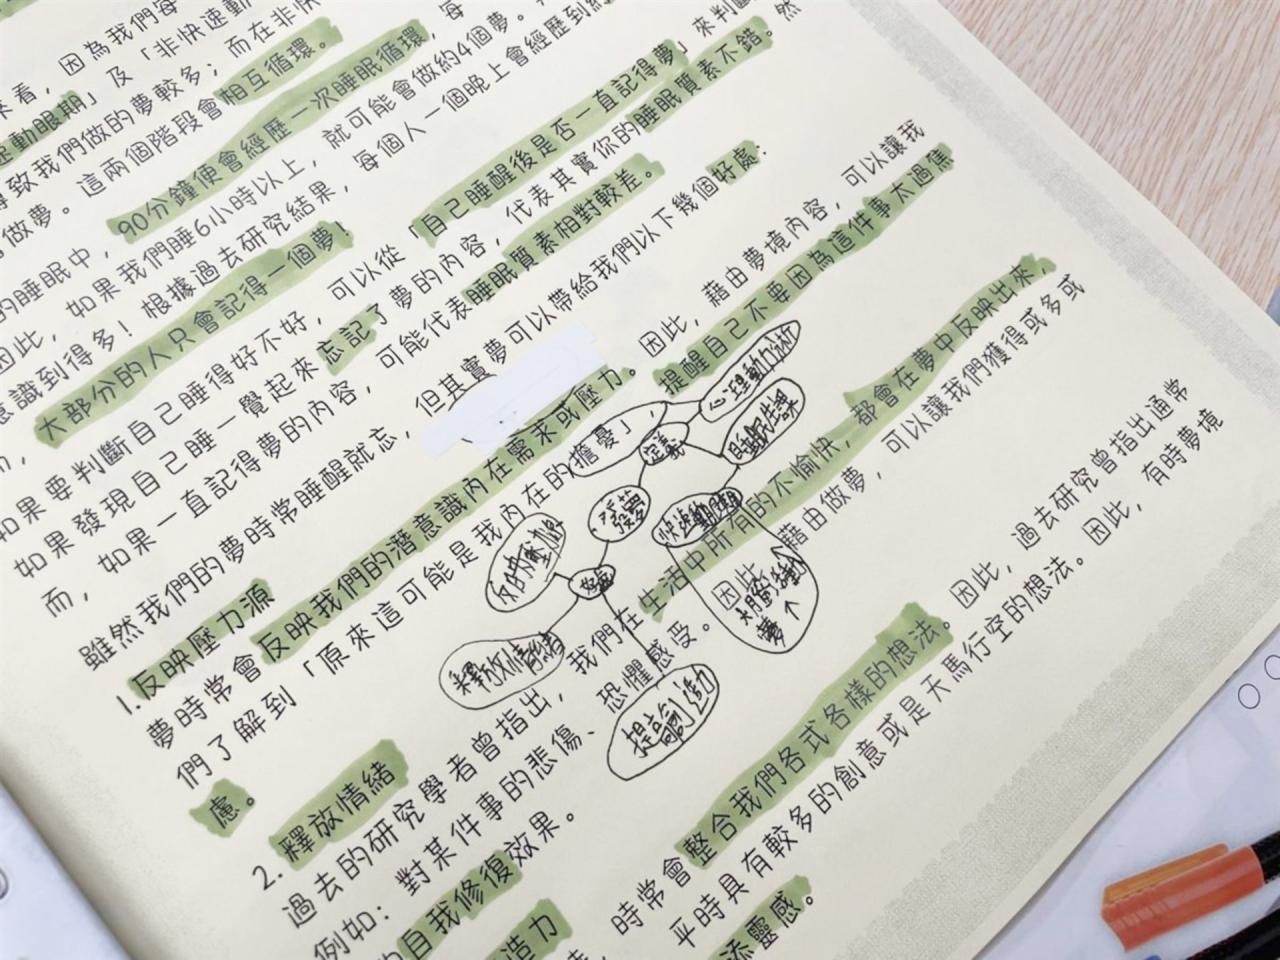 來看，因為我們每
速動眼期」及「非快速動
導致我們做的夢較多；而在非快
做夢。這兩個階段會相互循環。
的睡眠中，90分鐘便會經歷一次睡眠循環，每
因此，如果我們睡6小時以上，就可能會做約4個夢。
意識到得多！根據過去研究結果，每個人一個晚上會經歷到
大部分的人只會記得一個夢！
如果要判斷自己睡得好不好，可以從「自己睡醒後是否一直記得夢」來判斷
如果發現自己睡一覺起來忘記了夢的內容，代表其實你的睡眠質素不錯。然
而，如果一直記得夢的內容，可能代表睡眠質素相對較差。
雖然我們的夢時常睡醒就忘，但其實夢可以帶給我們以下幾個好處：
1.反映壓力源
夢時常會反映我們的潛意識內在需求或壓力。因此，藉由夢境內容，可以讓我
們了解到「原來這可能是我內在的擔憂」，提醒自己不要因為這件事太過焦
慮。
2. 釋放情緒
過去的研究學者曾指出，我們在生活中所有的不愉快，都會在夢中反映出來，
例如：對某件事的悲傷、恐懼感受。因此 藉由做夢，可以讓我們獲得或多或
的自我修復效果。
造力
時常會整合我們各式各樣的想法。因此，過去研究曾指出通常
平時具有較多的創意或是天馬行空的想法。因此，有時夢境
添靈感。
定義
好處
釋放情緒
提高創造力
夢↑